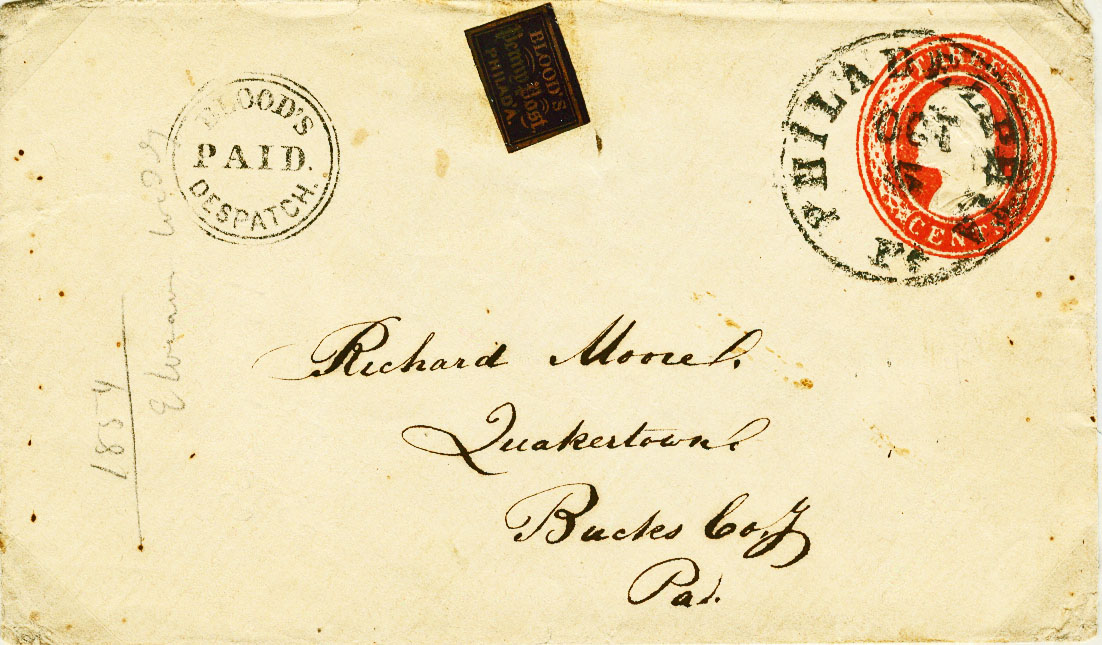 BLOOD'S
PAID.
DESPATCH.
BLOOD'S
Penny Post.
PHILAD'A.
PHILADELPHIA
OCT
Pa.
THREE
CENTS
Richard Moore.
Quakertown.
Bucks Co.
Pa.
1854